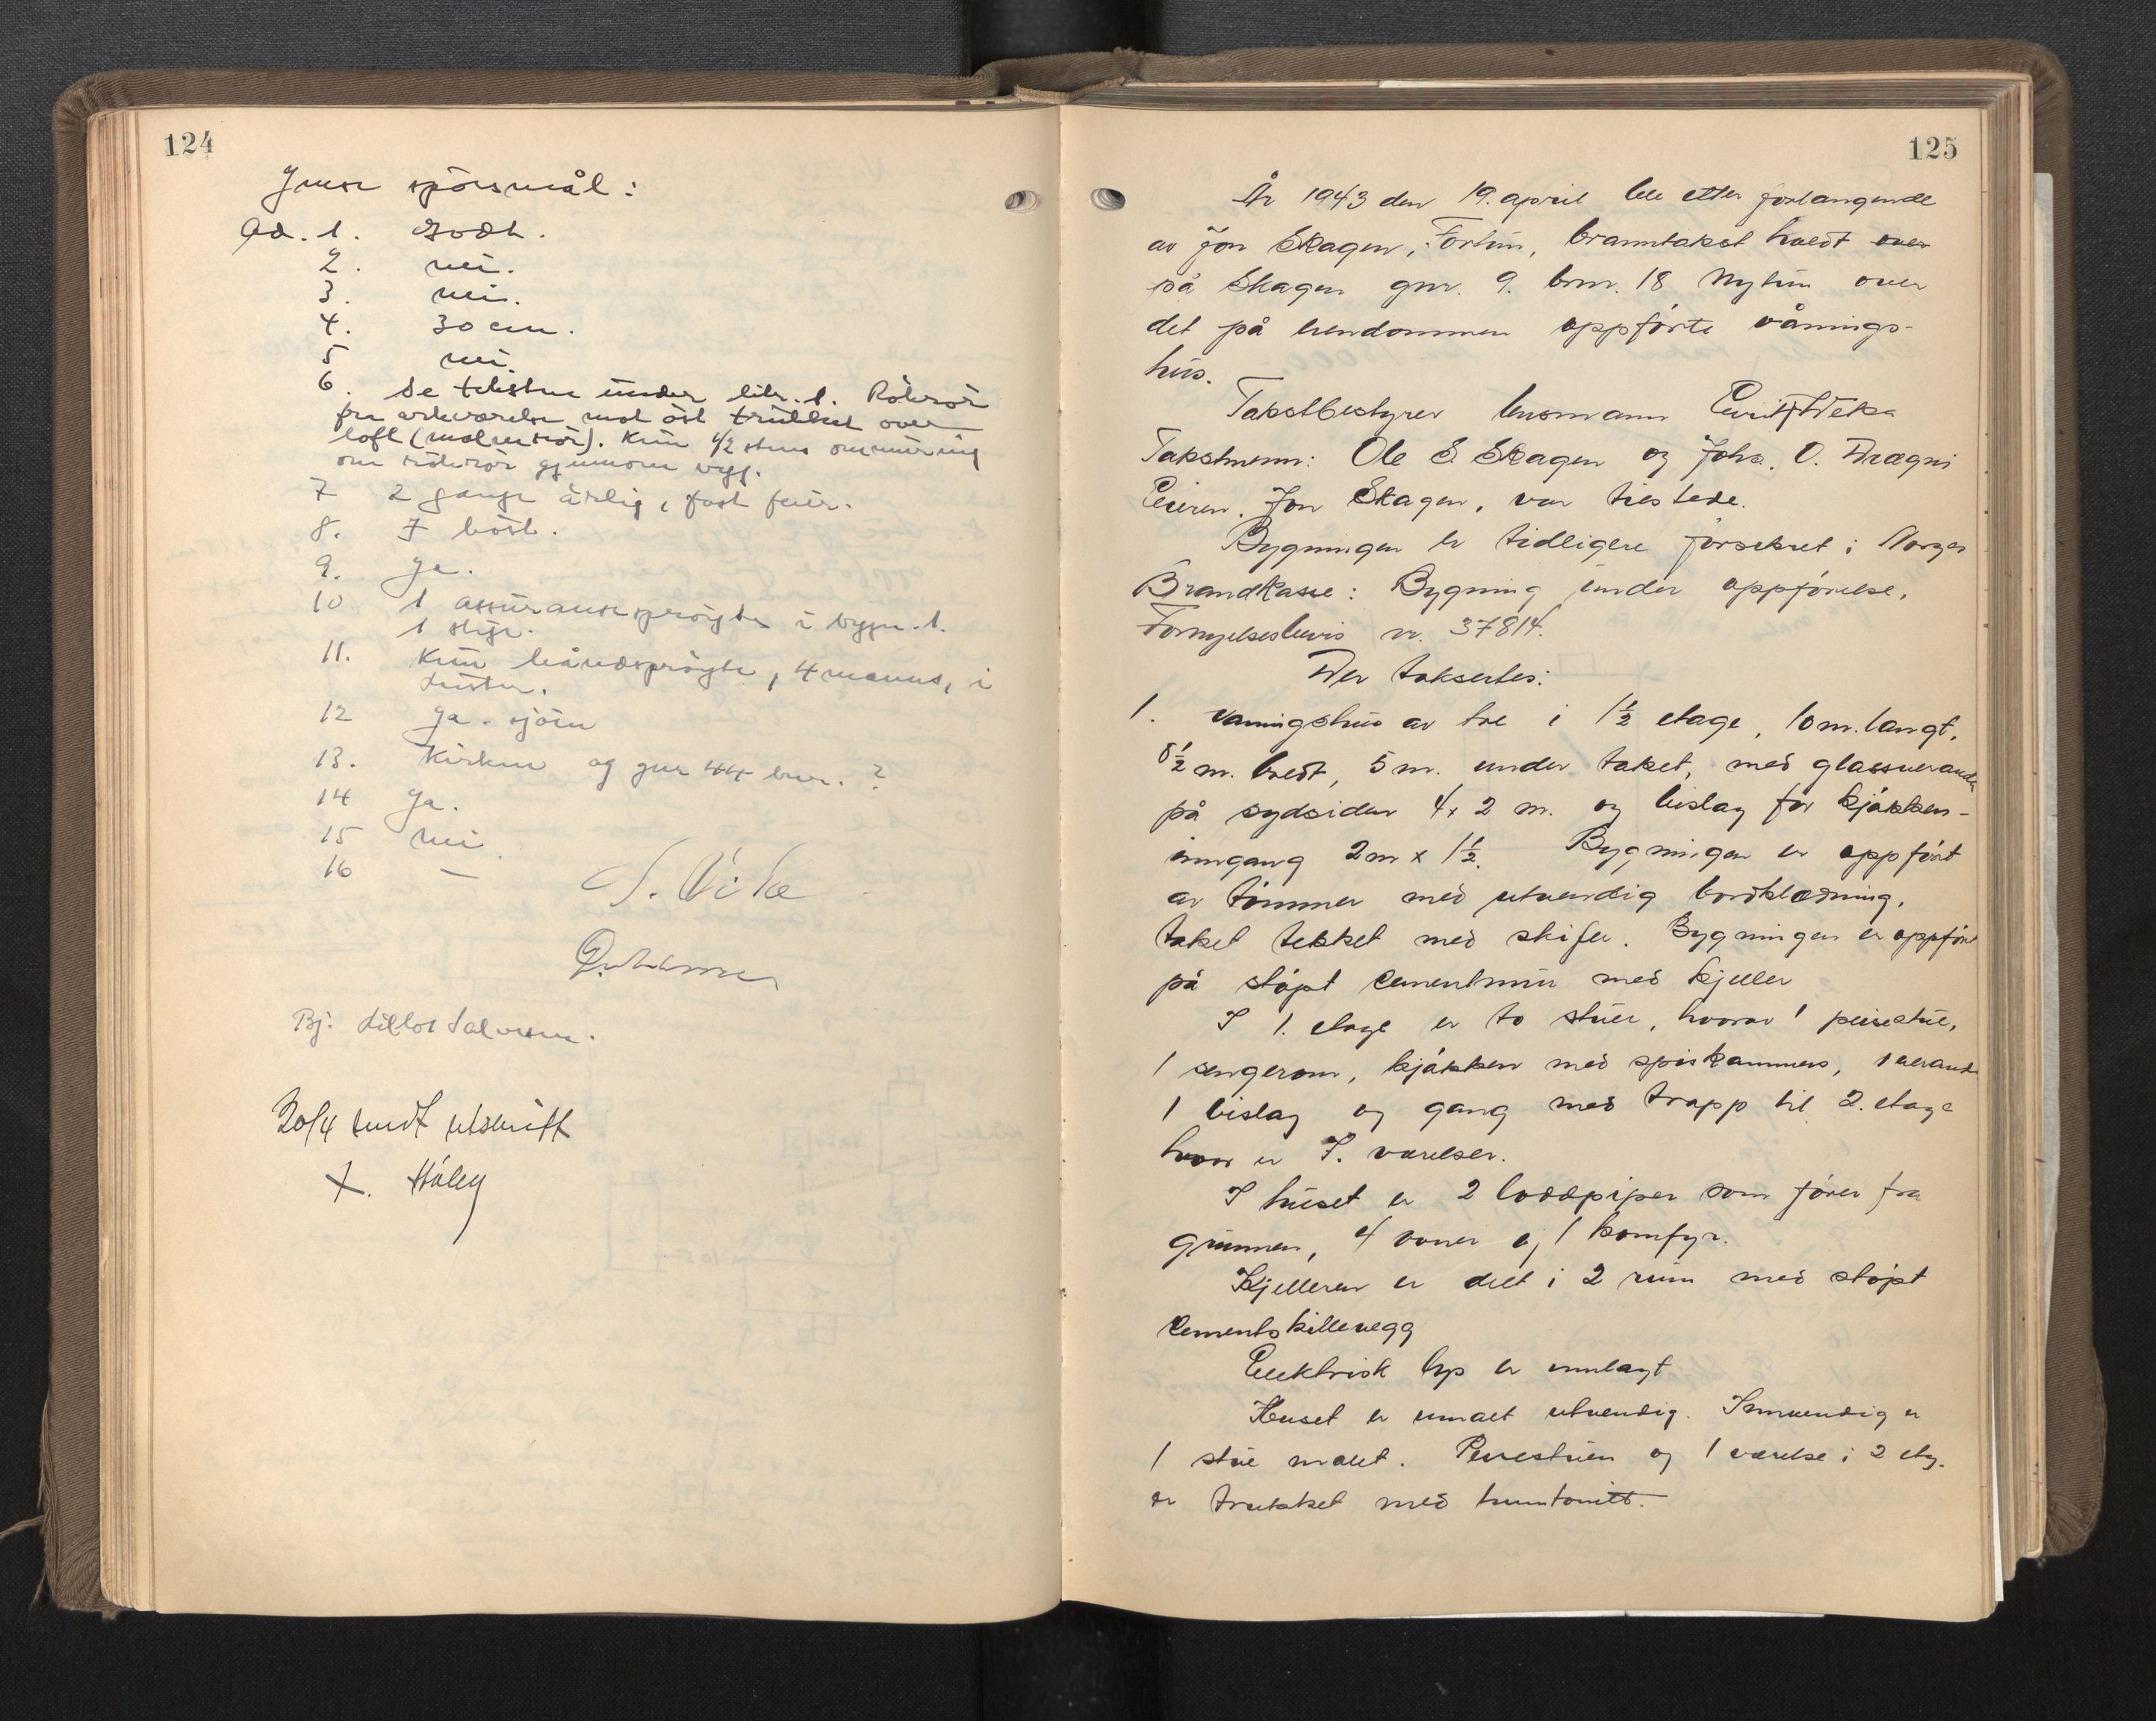 124
spörsmål:
Ad. 1. Godt.
2. nei.
3. nei.
4. 30 cm.
5 nei.
6. Se teksten under litr. 1. Rökrör
fra arb.værelse mot öst trukket over
loft (malm rör). Kun 1/2 stens ommuring
om rökrör gjennom vegg.
7 2 gange årlig, fast feier.
8. 7 böst.
9. Ja.
10 1 assuransesprøyte i bygn. 1.
1 stige.
11. Kun håndsprøyte, 4 manns, i
Luster.
12 Ja. sjöen
13. Kirken og gnr 44 bnr. ?
14 Ja.
15 nei
16 —
Bj.
30/4 sendt utskrift
125
År 1943 den 19. april ble etter forlangende
av Jon Skagen, Fortun, branntakst holdt over
på Skagen gnr. 9. bnr. 18 Nytun over
det på eiendommen oppførte vånings-
hus.
Takstbestyrer lensmann
Takstmenn: Ole S. Skagen og Johs. O. Drægni
Eieren, Jon Skagen, var tilstede.
Bygningen er tidligere forsikret i Norges
Brandkasse: Bygning under oppførelse,
Fornyelsesbevis nr. 37814.
Der taksertes:
1. Vaningshus av tre i 1½ etage, 10 m. langt,
8½ m. bredt, 5 m. under taket, med glassveranda
på sydsiden 4 x 2 m. og bislag for kjøkken-
inngang 2 m x 1½. Bygningen er oppført
av tømmer med utvendig bordklædning,
taket tekket med skifer. Bygningen er oppført
på støpt cementmur med kjeller
I 1. etage er to stuer, hvorav 1 peisestue,
1 sengerom, kjøkken med spiskammers, 1 veranda
1 bislag og gang med trapp til 2. etage
hvor er 7. værelser.
I huset er 2 loddpiper som fører fra
grunnen, 4 ovner og 1 komfyr.
Kjelleren er delt i 2 rum med støpt
cementskillevegg
Elektrisk lys er innlagt
Huset er umalt utvendig. Innvendig er
1 stue malt. Peisestuen og 1 værelse i 2 etg.
er trukket med huntonitt.